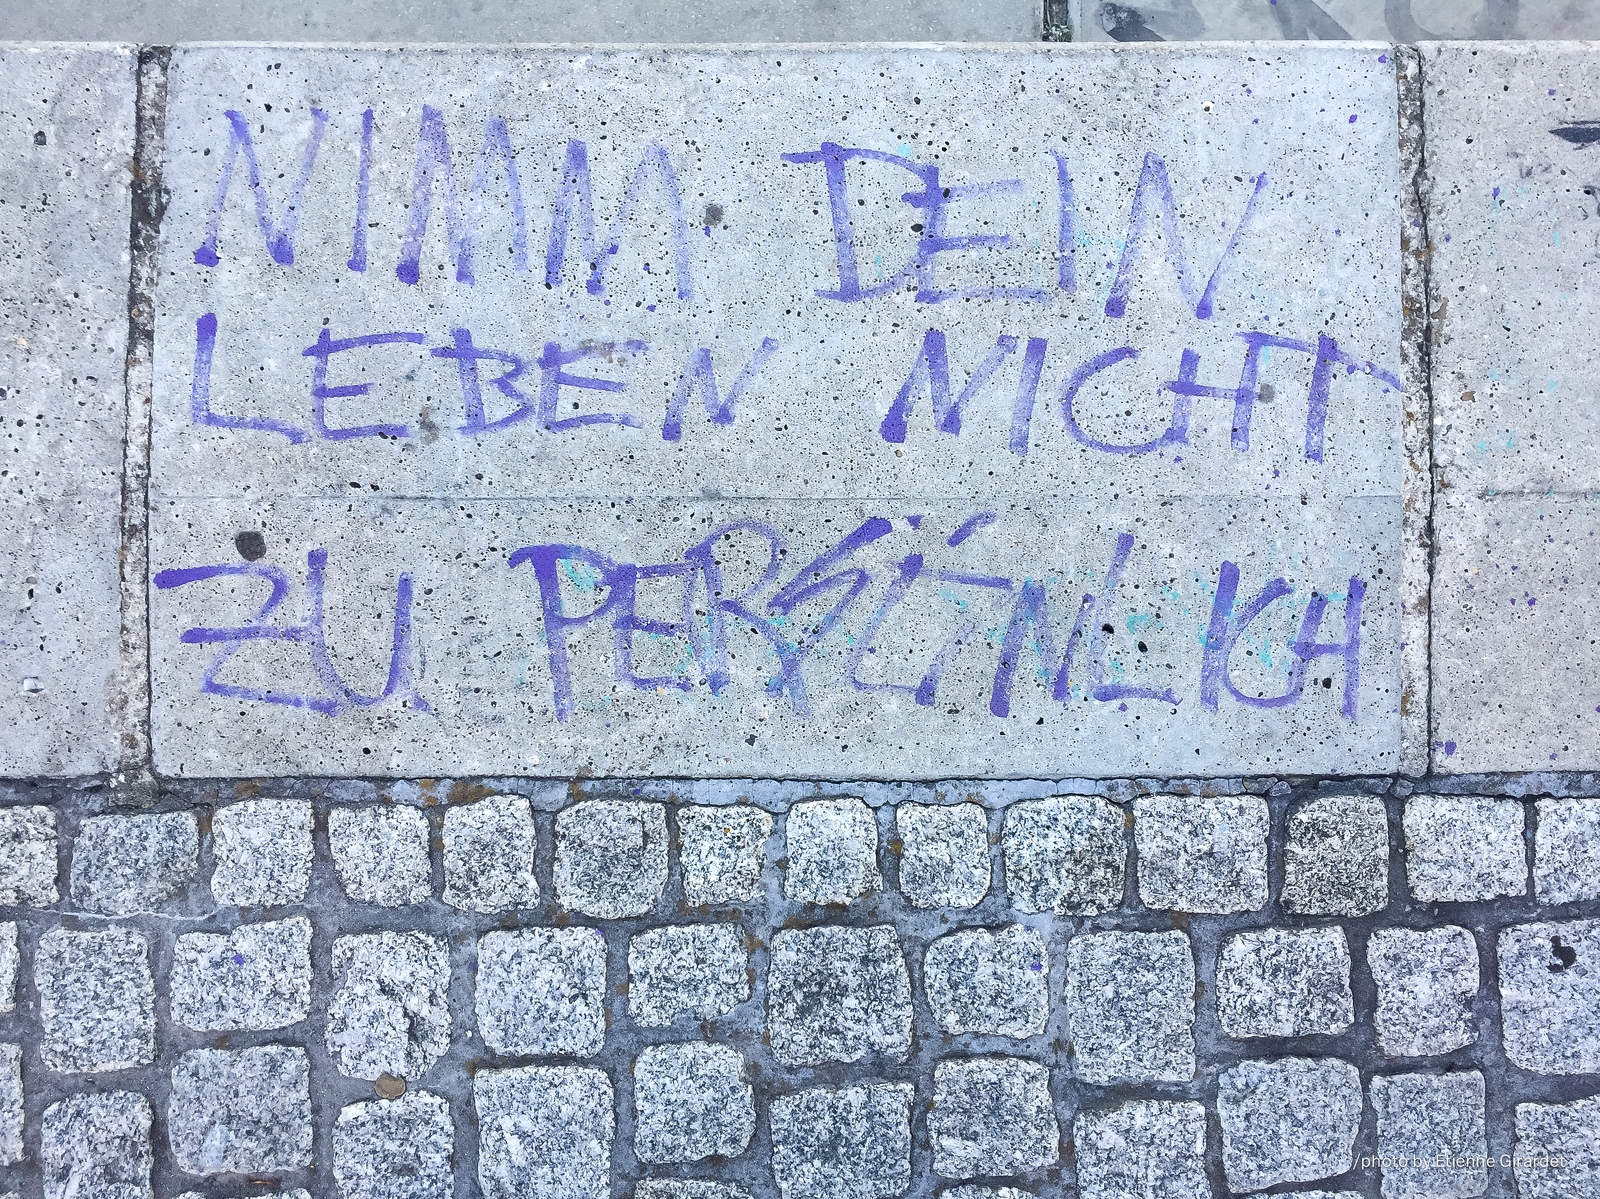 NIMM DEIN
LEBEN NICHT
ZU PERSÖNLICH
/photo by Etienne Girardet